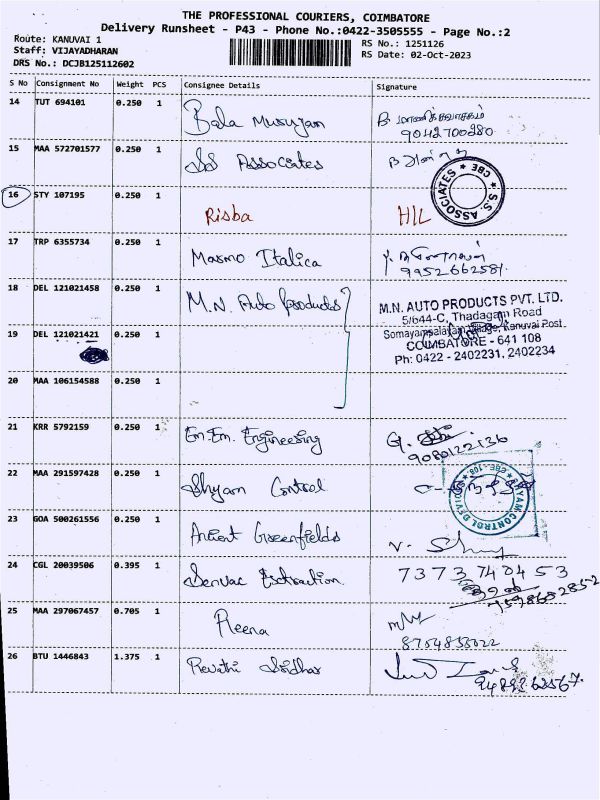 THE PROFESSIONAL COURIERS, COIMBATORE
Delivery Runsheet - P43 - Phone No.:0422-3505555 - Page No.:2
Route: KANUVAI 1
Staff: VIJAYADHARAN
DRS No.: DCJB125112602
RS No.: 1251126
RS Date: 02-Oct-2023
S No Consignment No Weight PCS Consignee Details Signature
14 TUT 694101 0.250 1 Bala
9042700280
15 MAA 572701577 0.250 1 SS Associates
S.S. ASSOCIATES * CBE *
16 STY 107195 0.250 1 Risba HIL
17 TRP 6355734 0.250 1 Masmo Italica
9952662581.
18 DEL 121021458 0.250 1 M.N. Auto Products
M.N. AUTO PRODUCTS PVT. LTD.
5/644-C, Thadagam Road
19 DEL 121021421 0.250 1
Somayampalayam Village, Kanuvai Post
COIMBATORE - 641 108
Ph: 0422 - 2402231, 2402234
20 MAA 106154588 0.250 1
21 KRR 5792159 0.250 1 Em.Em. Engineering
9080122136
22 MAA 291597428 0.250 1 Shyam Control
SHYAM CONTROL DEVICES * CBE-108 *
23 GOA 500261556 0.250 1 Greenfields
24 CGL 20039506 0.395 1 Servac Extraction
25 MAA 297067457 0.705 1 Reena
26 BTU 1446843 1.375 1 Revathi Sridhar